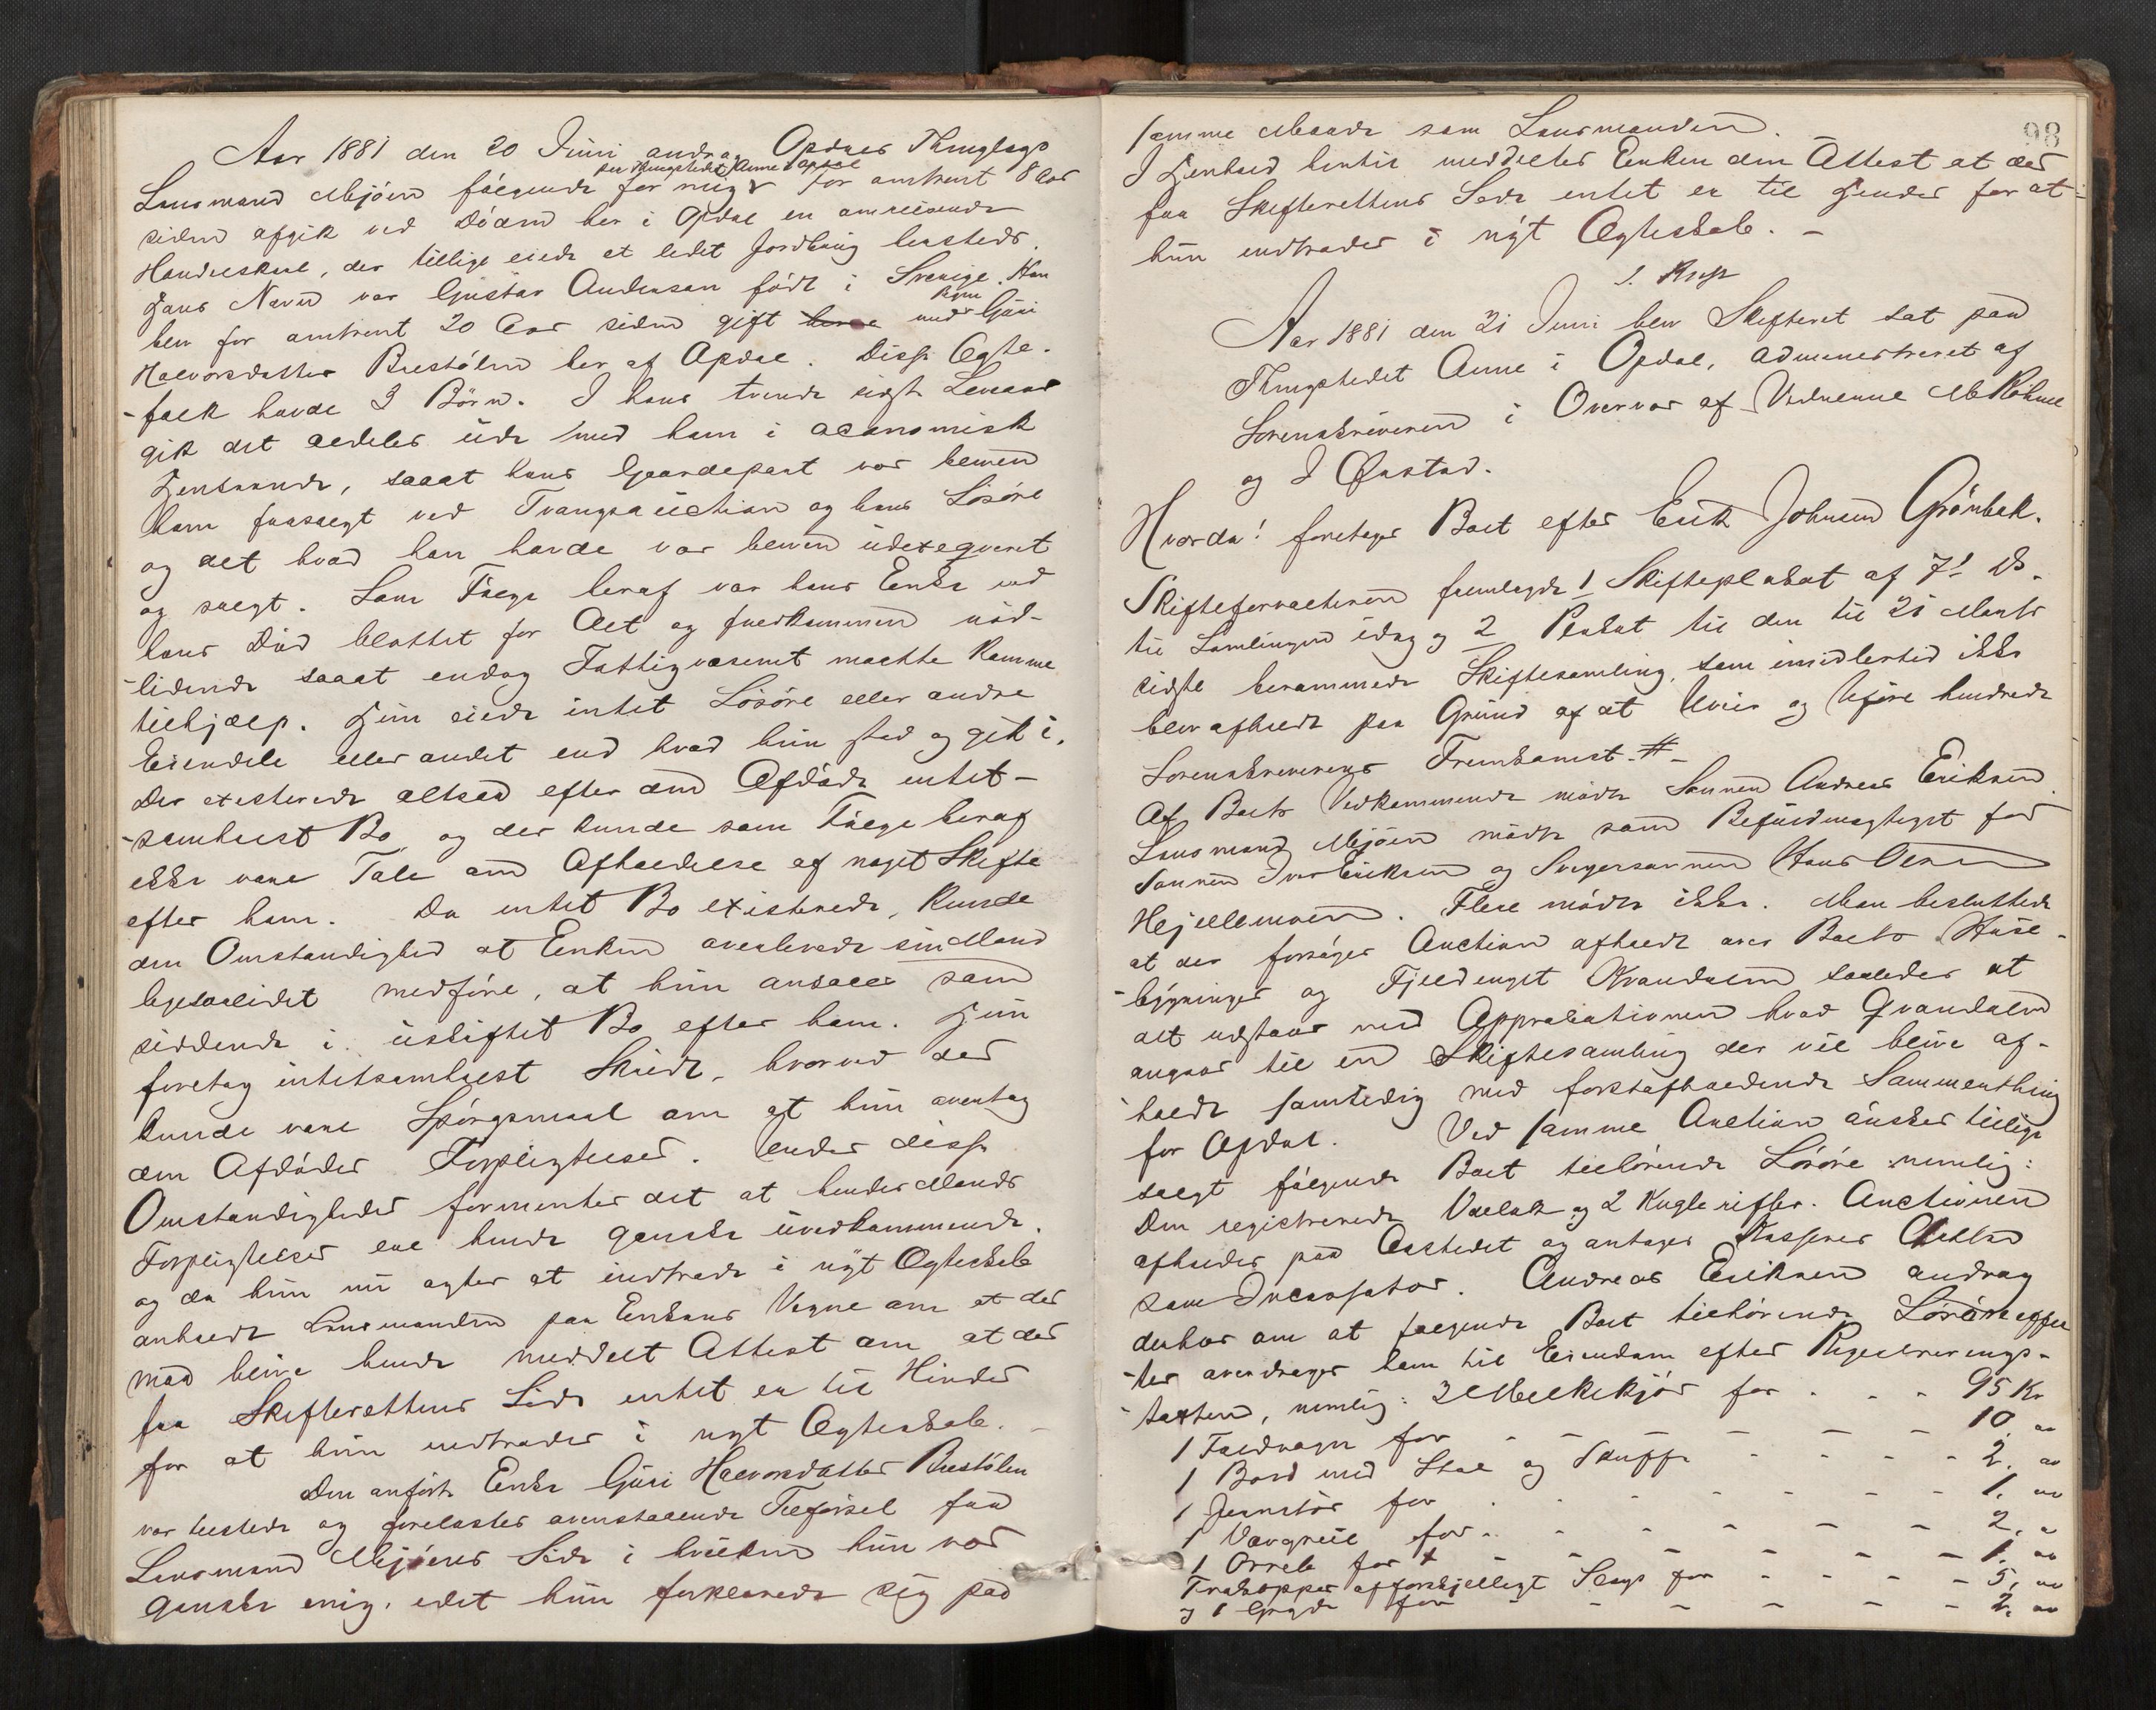 Aar 1881 den 20 Juni androg Opdals Thinglags
paa Thingstedet Aune i Opdal
Lensmand Mjöen fölgende for mig: for omtrent 8 Aar
siden afgik ved Döden her i Opdal en omreisende
Handelskarl, der tillige eiede et lidet Jordbrug hersteds.
Hans Navn var Gustav Andersen född i Sverige. Han
blev for omtrent 20 Aar siden gift med Guri
Halvorsdatter Bustölen her af Opdal. Disse Ægte-
-folk havde 3 Börn. I hans tvende sidste Leveaar
gik det aldeles ude med ham i økonomisk
Henseende, saaat hans Gaardepart var bleven
ham frasolgt ved Tvangsauction og hans Lösöre
og alt hvad han havde var bleven udexeqveret
og solgt. Som Fölge heraf var hans Enke ved
hans Död blottet for Alt og fuldkommen nöd-
-lidende saaat endog Fattigvæsenet maatte komme
tilhjælp. Hun eiede intet Lösöre eller andre
Eiendele eller andet end hvad hun stod og gik i.
Der existerede altsaa efter den Afdöde intet-
-somhelst Bo og der kunde som Fölge heraf
ikke være Tale om Afholdelse af noget Skifte
efter ham. Da intet Bo existerede, kunde
den Omstændighed at Enken overlevede sin Mand
ligesaalidet medföre, at hun ansaaes som
siddende i uskiftet Bo efter ham. Hun
foretog intetsomhelst Skridt, hvorved der
kunde være Spörgsmaal om at hun overtog
den Afdödes Forpligtelser. Under disse
Omstændigheder formentes det at hendes Mands
Forpligtelser ere hende ganske uvedkommende.
og da hun nu agter at indtræde i nyt Ægteskab
anholdt Lensmanden paa Enkens Vegne om at der
maa blive hende meddelt Attest om at der
fra Skifterettens Side intet er til Hinder
for at hun indtræder i nyt Ægteskab. -
Den anförte Enke Guri Halvorsdatter Bustölen
var tilstede og forelæstes ovenstaaende Tilförsel fra
Lensmand Mjöens Side i hvilken hun var
ganske enig, idet hun forklarede sig paa
98
samme Maade som Lensmanden.
I Henhold hertil meddeles Enken den Attest at der
fra Skifterettens Side intet er til Hinder for at
hun indtræder i nyt Ægteskab. -
Aar 1881 den 21 Juni blev Skifteret sat paa
Thingstedet Aune i Opdal, administreret af
Sorenskriveren i Overvær af Vidnerne
og
Hvorda! foretoges Boet efter Erik Johnsen Grönbak.
Skifteforvalteren fremlagde 1 Skifteplakat af 7' ds.
til Samlingen idag og 2 Plakat til den til 21 Marts
sidste berammede Skiftesamling, som imidlertid ikke
blev afholdt paa Grund af at Uveir og Uföre hindrede
Sorenskriverens Fremkomst. #-
Af Boets Vedkommende mödte Sönnen Andreas Eriksen.
Lensmand Mjöen mödte som Befuldmægtiget for
Sönnen Iver Eriksen og Svigersönnen Hans Olsen
Flere mödte ikke. Man besluttede
at der forsöges Auction afholdt over Boets Huse-
-bygninger og Fjeldenget Kvandalen saaledes at
alt udstaar med Approbationen hvad Qvandalen
angaar til en Skiftesamling der vil blive af-
-holdt samtidig med forstafholdende Sommerthing
for Opdal. Ved samme Auction önskes tillige
solgt fölgende Boet tilhörende Lösöre nemlig:
Den registrerede Vallak og 2 Kuglerifler. Auctionen
afholdes paa Aastedet og antages Kasserer
som Incassator. Andreas Eriksen androg
derhos om at fölgende Boet tilhörende Lösöreeffec
-ter overdrages ham til Eiendom efter Registrerings-
-taxten, nemlig: 3 Melkekjör for . . . 95 Kr
1 Faldvogn for - - - - - 10. "
1 Bord med Stol og Skuffe - - - - 2. "
1 Jernstör for . - - - - - 1. "
1 Vævgreie for - - - - - 2. "
1 for - - - - - 1. "
Trækopper af forskjelligt Slags for - - - - 5. "
og 1 Gryde for - - - - - 2. "